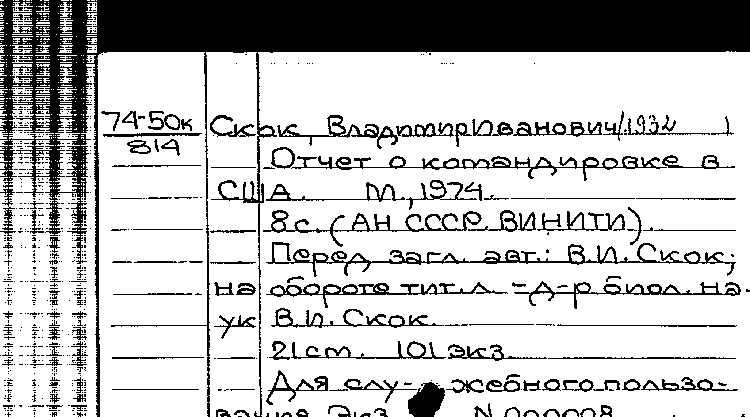 74-50к
814
Скок, Владимир Иванович /1932 )
Отчет о командировке в
США. М., 1974.
8с. (АН СССР. ВИНИТИ).
Перед загл. авт.: В.И. Скок;
на обороте тит. л. - д-р биол. на-
ук В.И. Скок.
21 см. 101 экз.
Для слу- жебного пользо-
вания Экз. N 000008